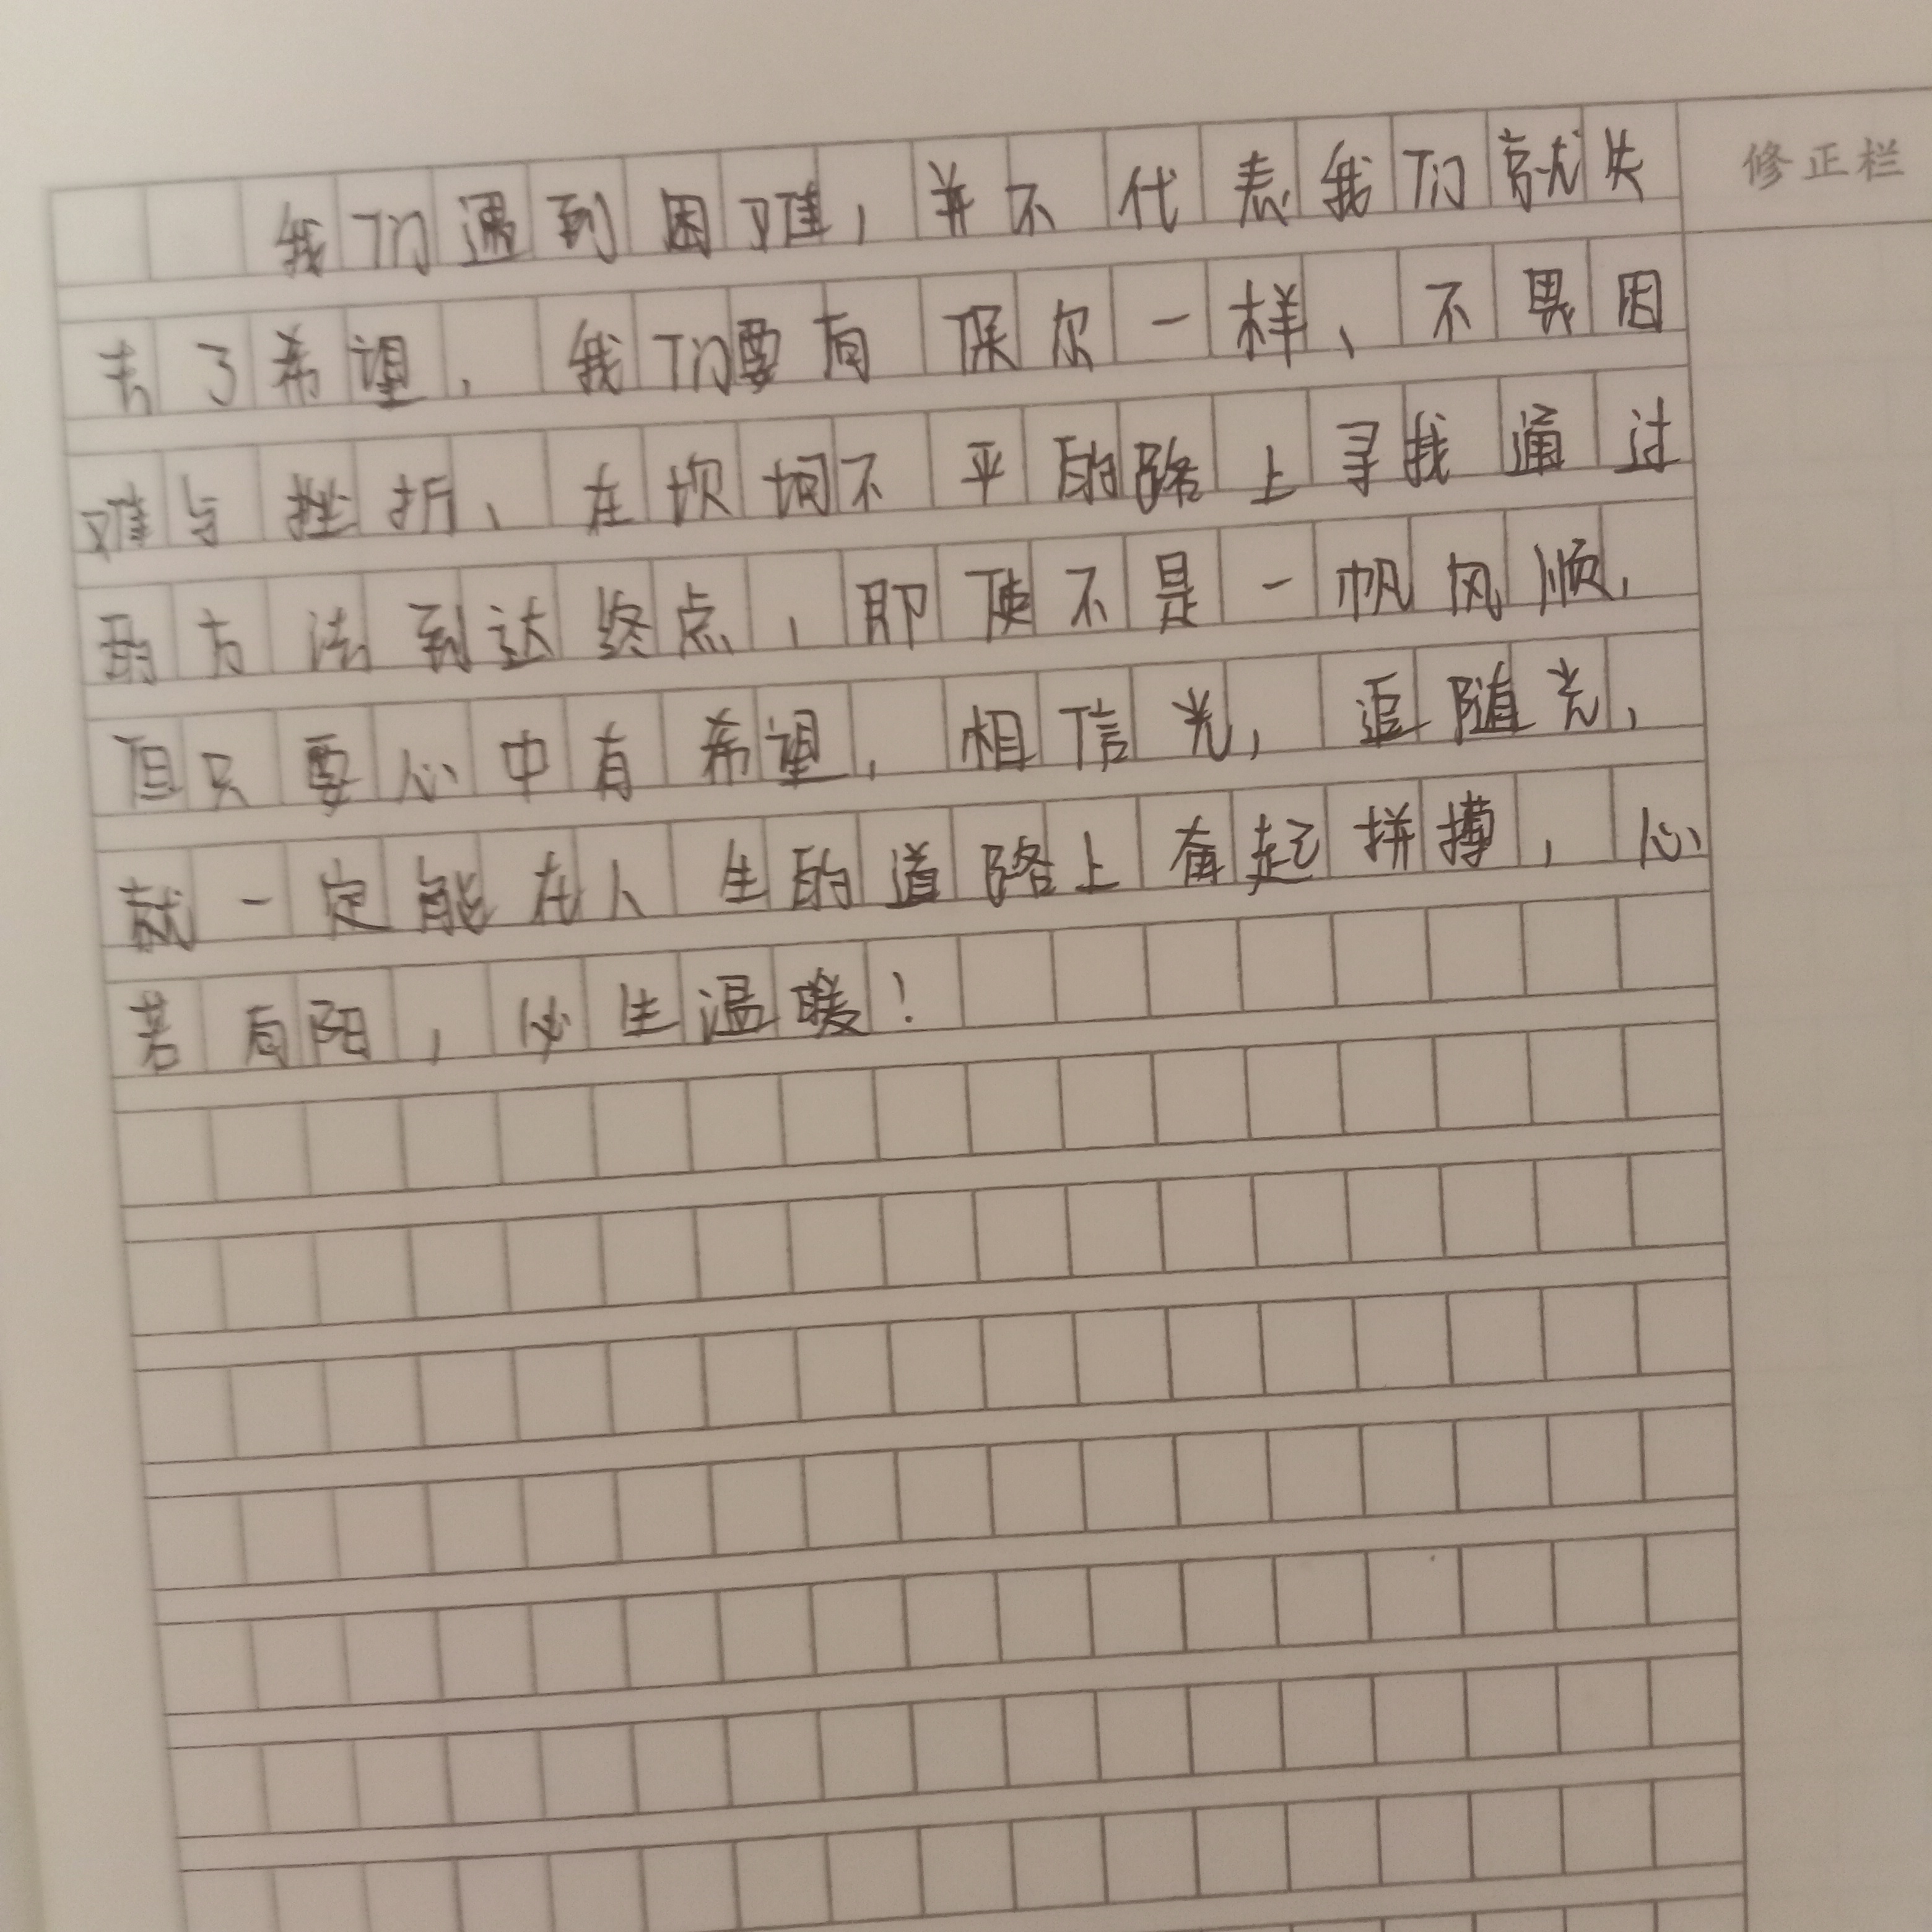 我们遇到困难，并不代表我们就失
修正栏
去了希望，我们要有保尔一样、不畏困
难与挫折、在坎坷不平的路上寻找通过
的方法到达终点，即使不是一帆风顺，
但只要心中有希望，相信光，追随光，
就一定能在人生的道路上奋起拼搏，心
若有阳，必生温暖！